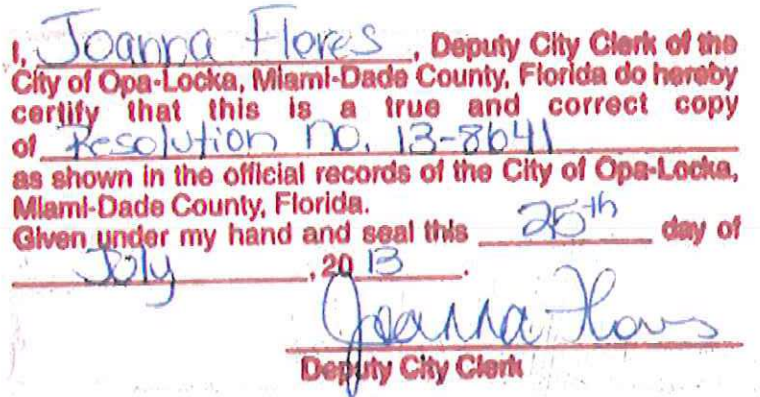 I, Joanna Flores, Deputy City Clerk of the
City of Opa-Locka, Miami-Dade County, Florida do hereby
certify that this is a true and correct copy
of Resolution no. 13-8641
as shown in the official records of the City of Opa-Locka,
Miami-Dade County, Florida.
Given under my hand and seal this 25th day of
July, 2013.
Joanna Flores
Deputy City Clerk